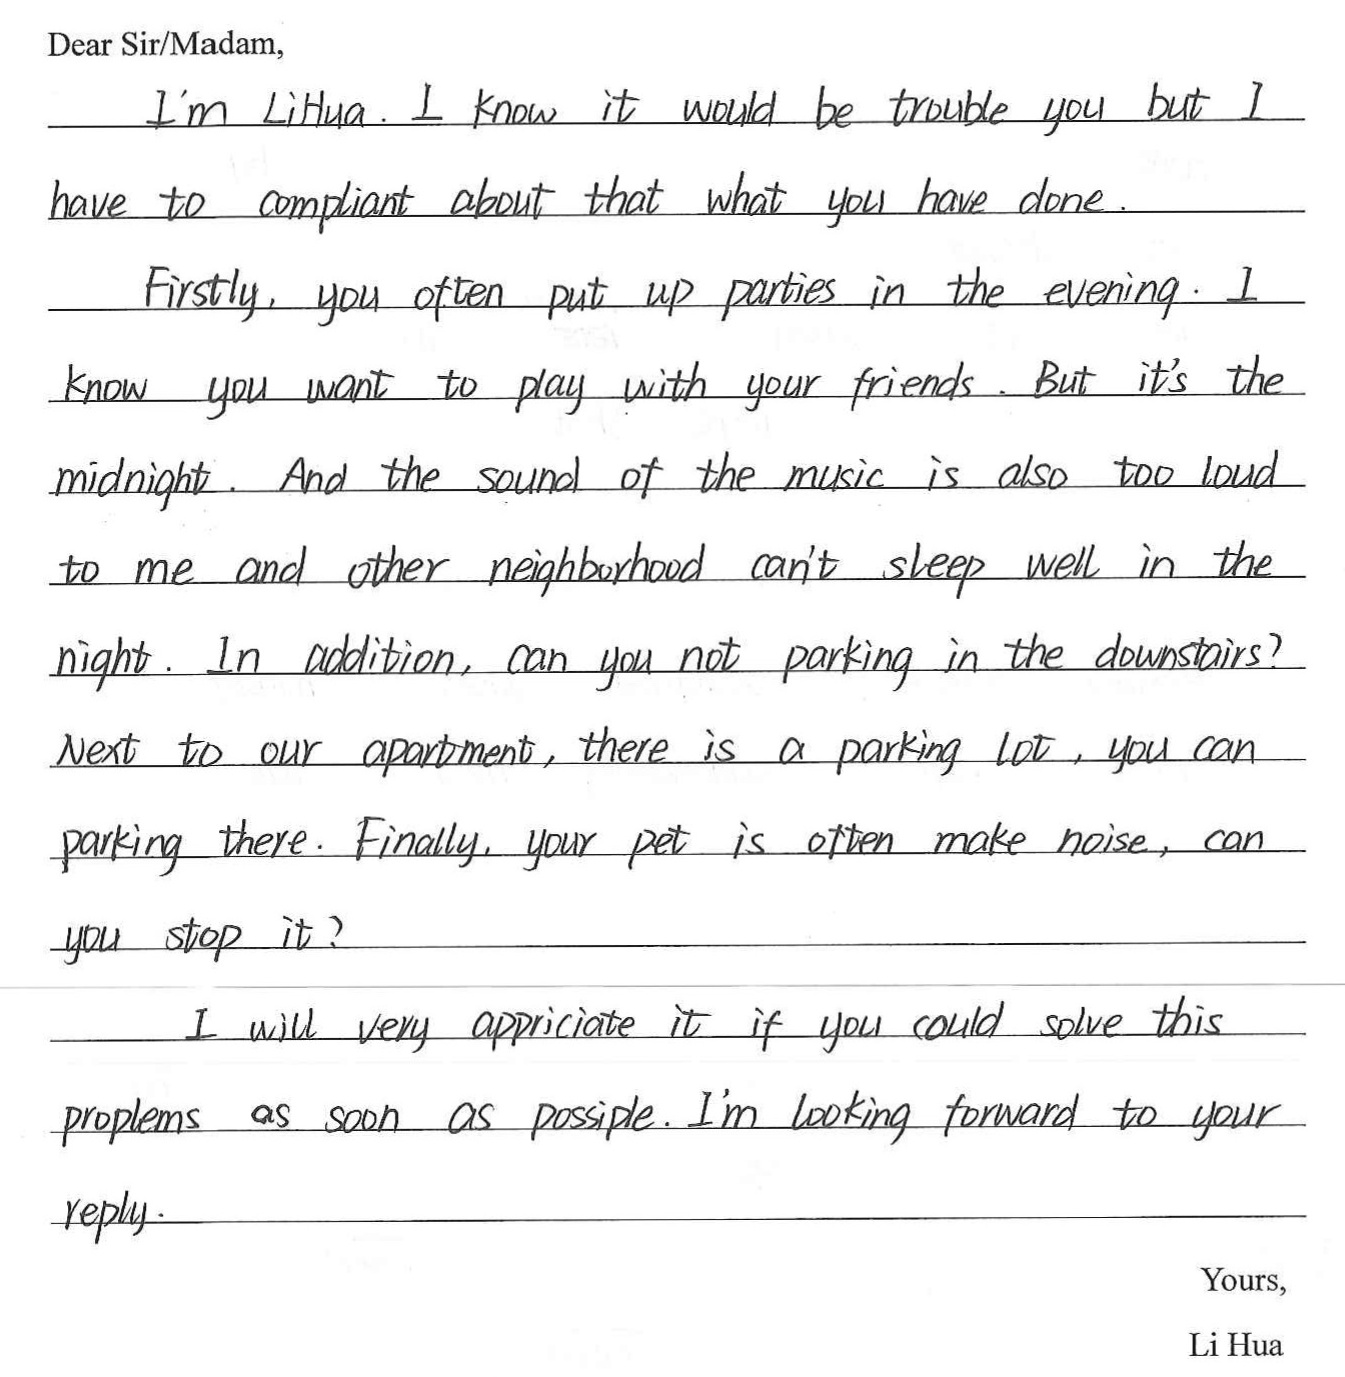 Dear Sir/Madam,
I'm LiHua. I know it would be trouble you but I
have to compliant about that what you have done.
Firstly, you often put up parties in the evening. I
know you want to play with your friends. But it's the
midnight. And the sound of the music is also too loud
to me and other neighborhood can't sleep well in the
night. In addition, can you not parking in the downstairs?
Next to our apartment, there is a parking lot, you can
parking there. Finally, your pet is often make noise, can
you stop it?
I will very appriciate it if you could solve this
proplems as soon as possiple. I'm looking forward to your
reply.
Yours,
Li Hua